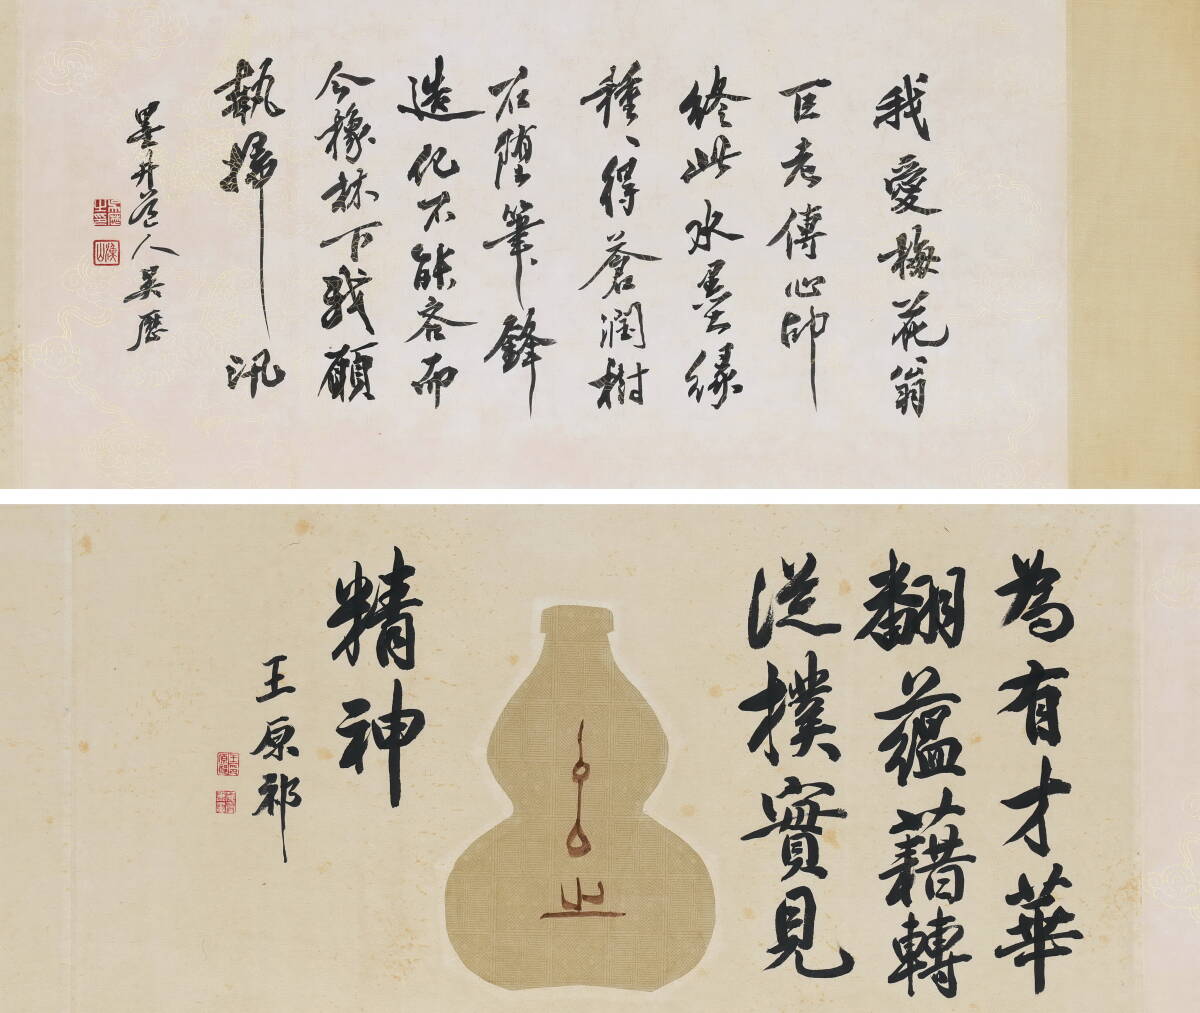 我愛梅花翁
巨老傳心印
終此水墨緣
種種得蒼潤樹
石隨筆鋒
造化不能吝而
今橡林下我願
執帚汛
墨井道人吳歷
為有才華
翻蘊藉轉
從撲實見
精神
王原祁